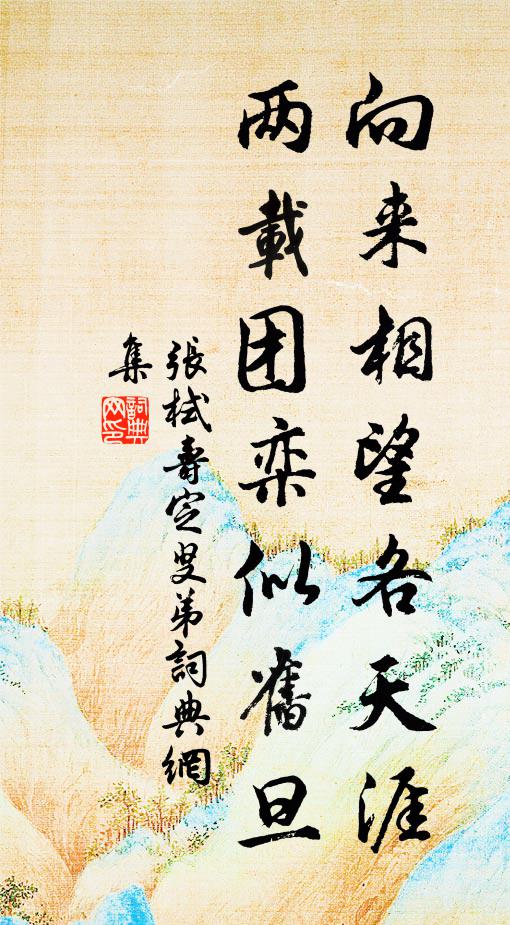 向来相望各天涯
两載团栾似舊旦
張栻壽定叟弟詞典網
集
詞典網印